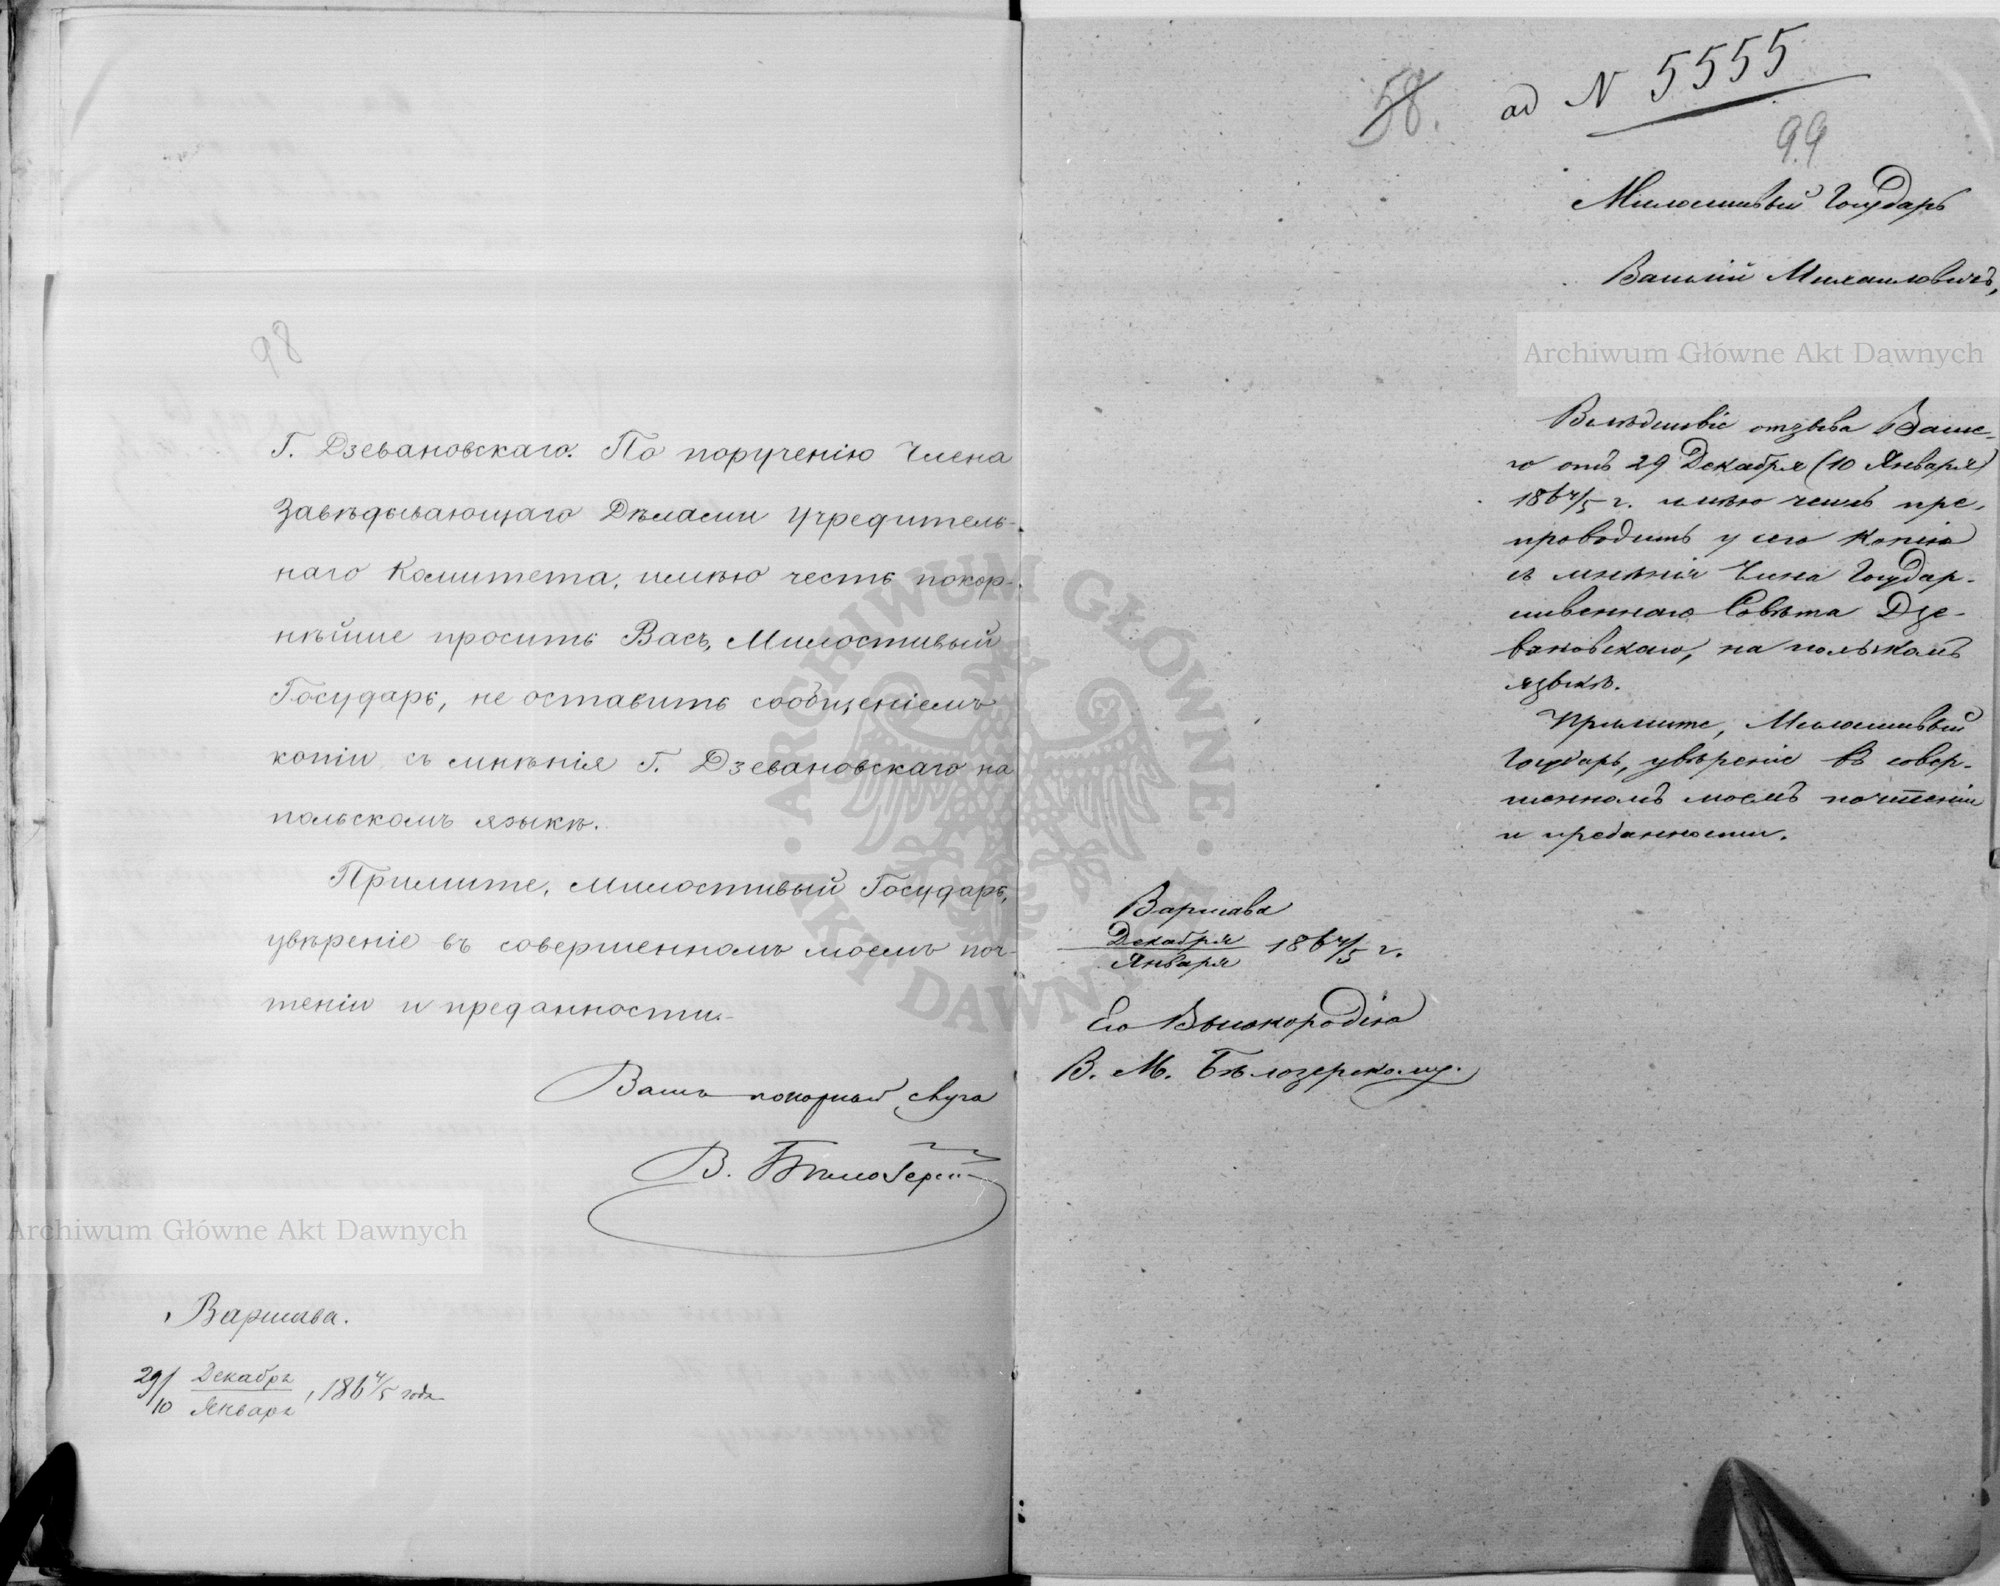 98
Г. Дзевановскаго. По порученію Члена
Завѣдывающаго Дѣлами Учредитель-
наго Комитета, имѣю честь покор-
нѣйше просить Васъ, Милостивый
Государь, не оставить сообщеніемъ
копіи съ мнѣнія Г. Дзевановскаго на
польскомъ языкѣ.
Примите, Милостивый Государь,
увѣреніе въ совершенномъ моемъ поч-
теніи и преданности.
Вашъ покорный слуга
В. Бѣлозерскій
Варшава.
29/10 Декабря/Января, 1864/5 года
58. ad N 5555
99
Милостивый Государь
Василій Михаиловичъ,
Вслѣдствіе отзыва Ваше-
го отъ 29 Декабря (10 Января)
1864/5 г. имѣю честь пре-
проводить у сего копію
съ мнѣнія Члена Государ-
ственнаго Совѣта Дзе-
вановскаго, на польскомъ
языкѣ.
Примите, Милостивый
Государь, увѣреніе въ совер-
шенномъ моемъ почтеніи
и преданности.
Варшава
Декабря/Января 1864/5 г.
Его Высокородію
В. М. Бѣлозерскому.
Archiwum Główne Akt Dawnych
Archiwum Główne Akt Dawnych
ARCHIWUM GŁÓWNE AKT DAWNYCH